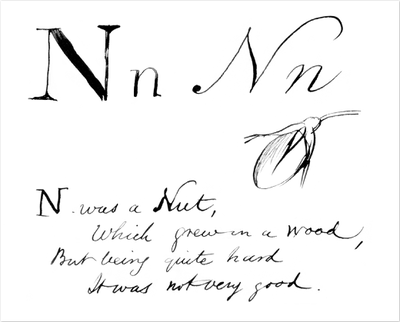 N n N n
N. was a Nut,
Which grew in a wood,
But being quite hard
It was not very good.